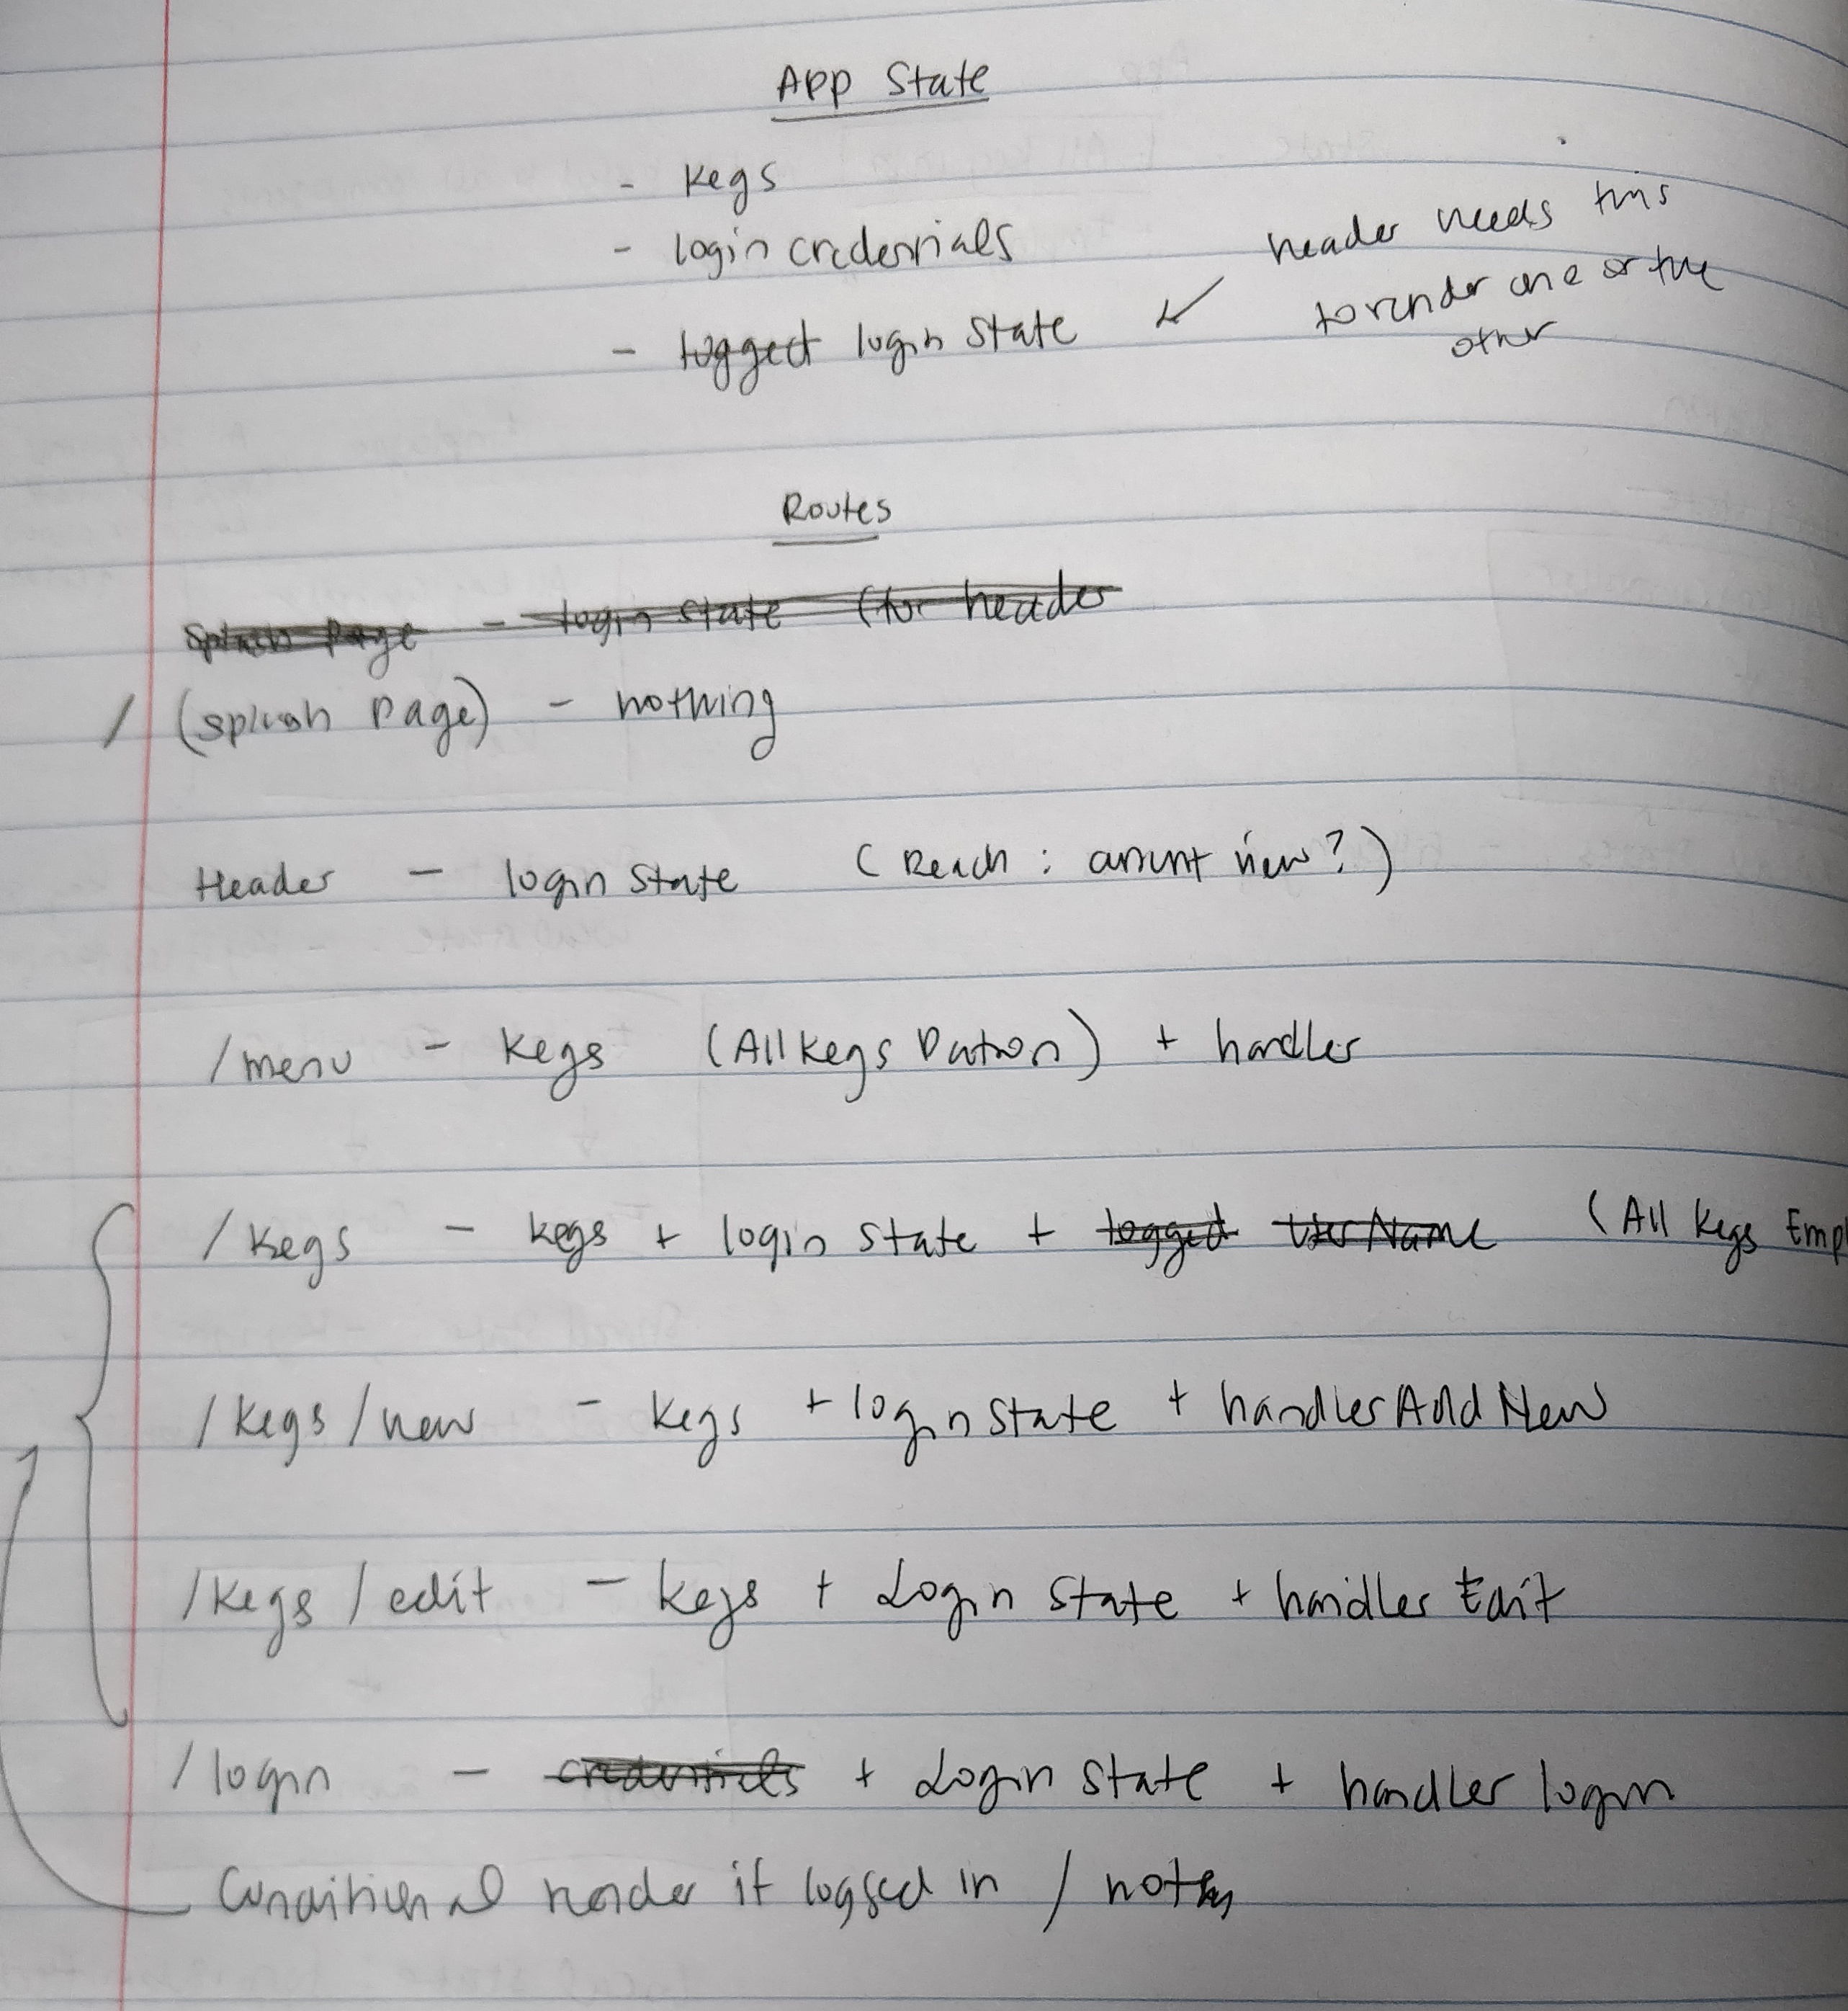 App State
- Kegs
- login credentials
- login State ↙ header needs this
to render one or the
other
Routes
Splash Page - login state (for header
/ (splash Page) - nothing
Header - login State (Reach: current view?)
/menu - Kegs (AllKegs Patron) + handler
/Kegs - kegs + login state + logged UserName (All Kegs Empl
/Kegs/new - Kegs + loginState + handlerAddNew
/Kegs/edit - kegs + Login State + handler Edit
/login - credentials + Login State + handler login
Conditional render if logged in /